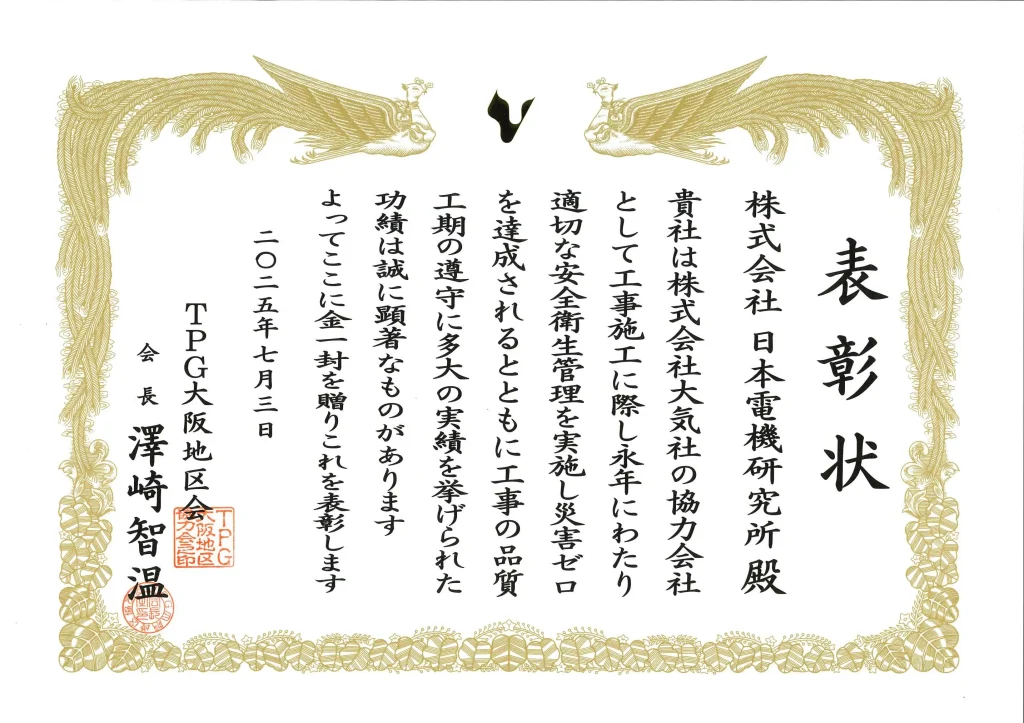 表彰状
株式会社 日本電機研究所 殿
貴社は株式会社大気社の協力会社
として工事施工に際し永年にわたり
適切な安全衛生管理を実施し災害ゼロ
を達成されるとともに工事の品質
工期の遵守に多大の実績を挙げられた
功績は誠に顕著なものがあります
よってここに金一封を贈りこれを表彰します
二〇二五年七月三日
TPG大阪地区会
会長 澤崎智温
TPG
大阪地区
協力会印